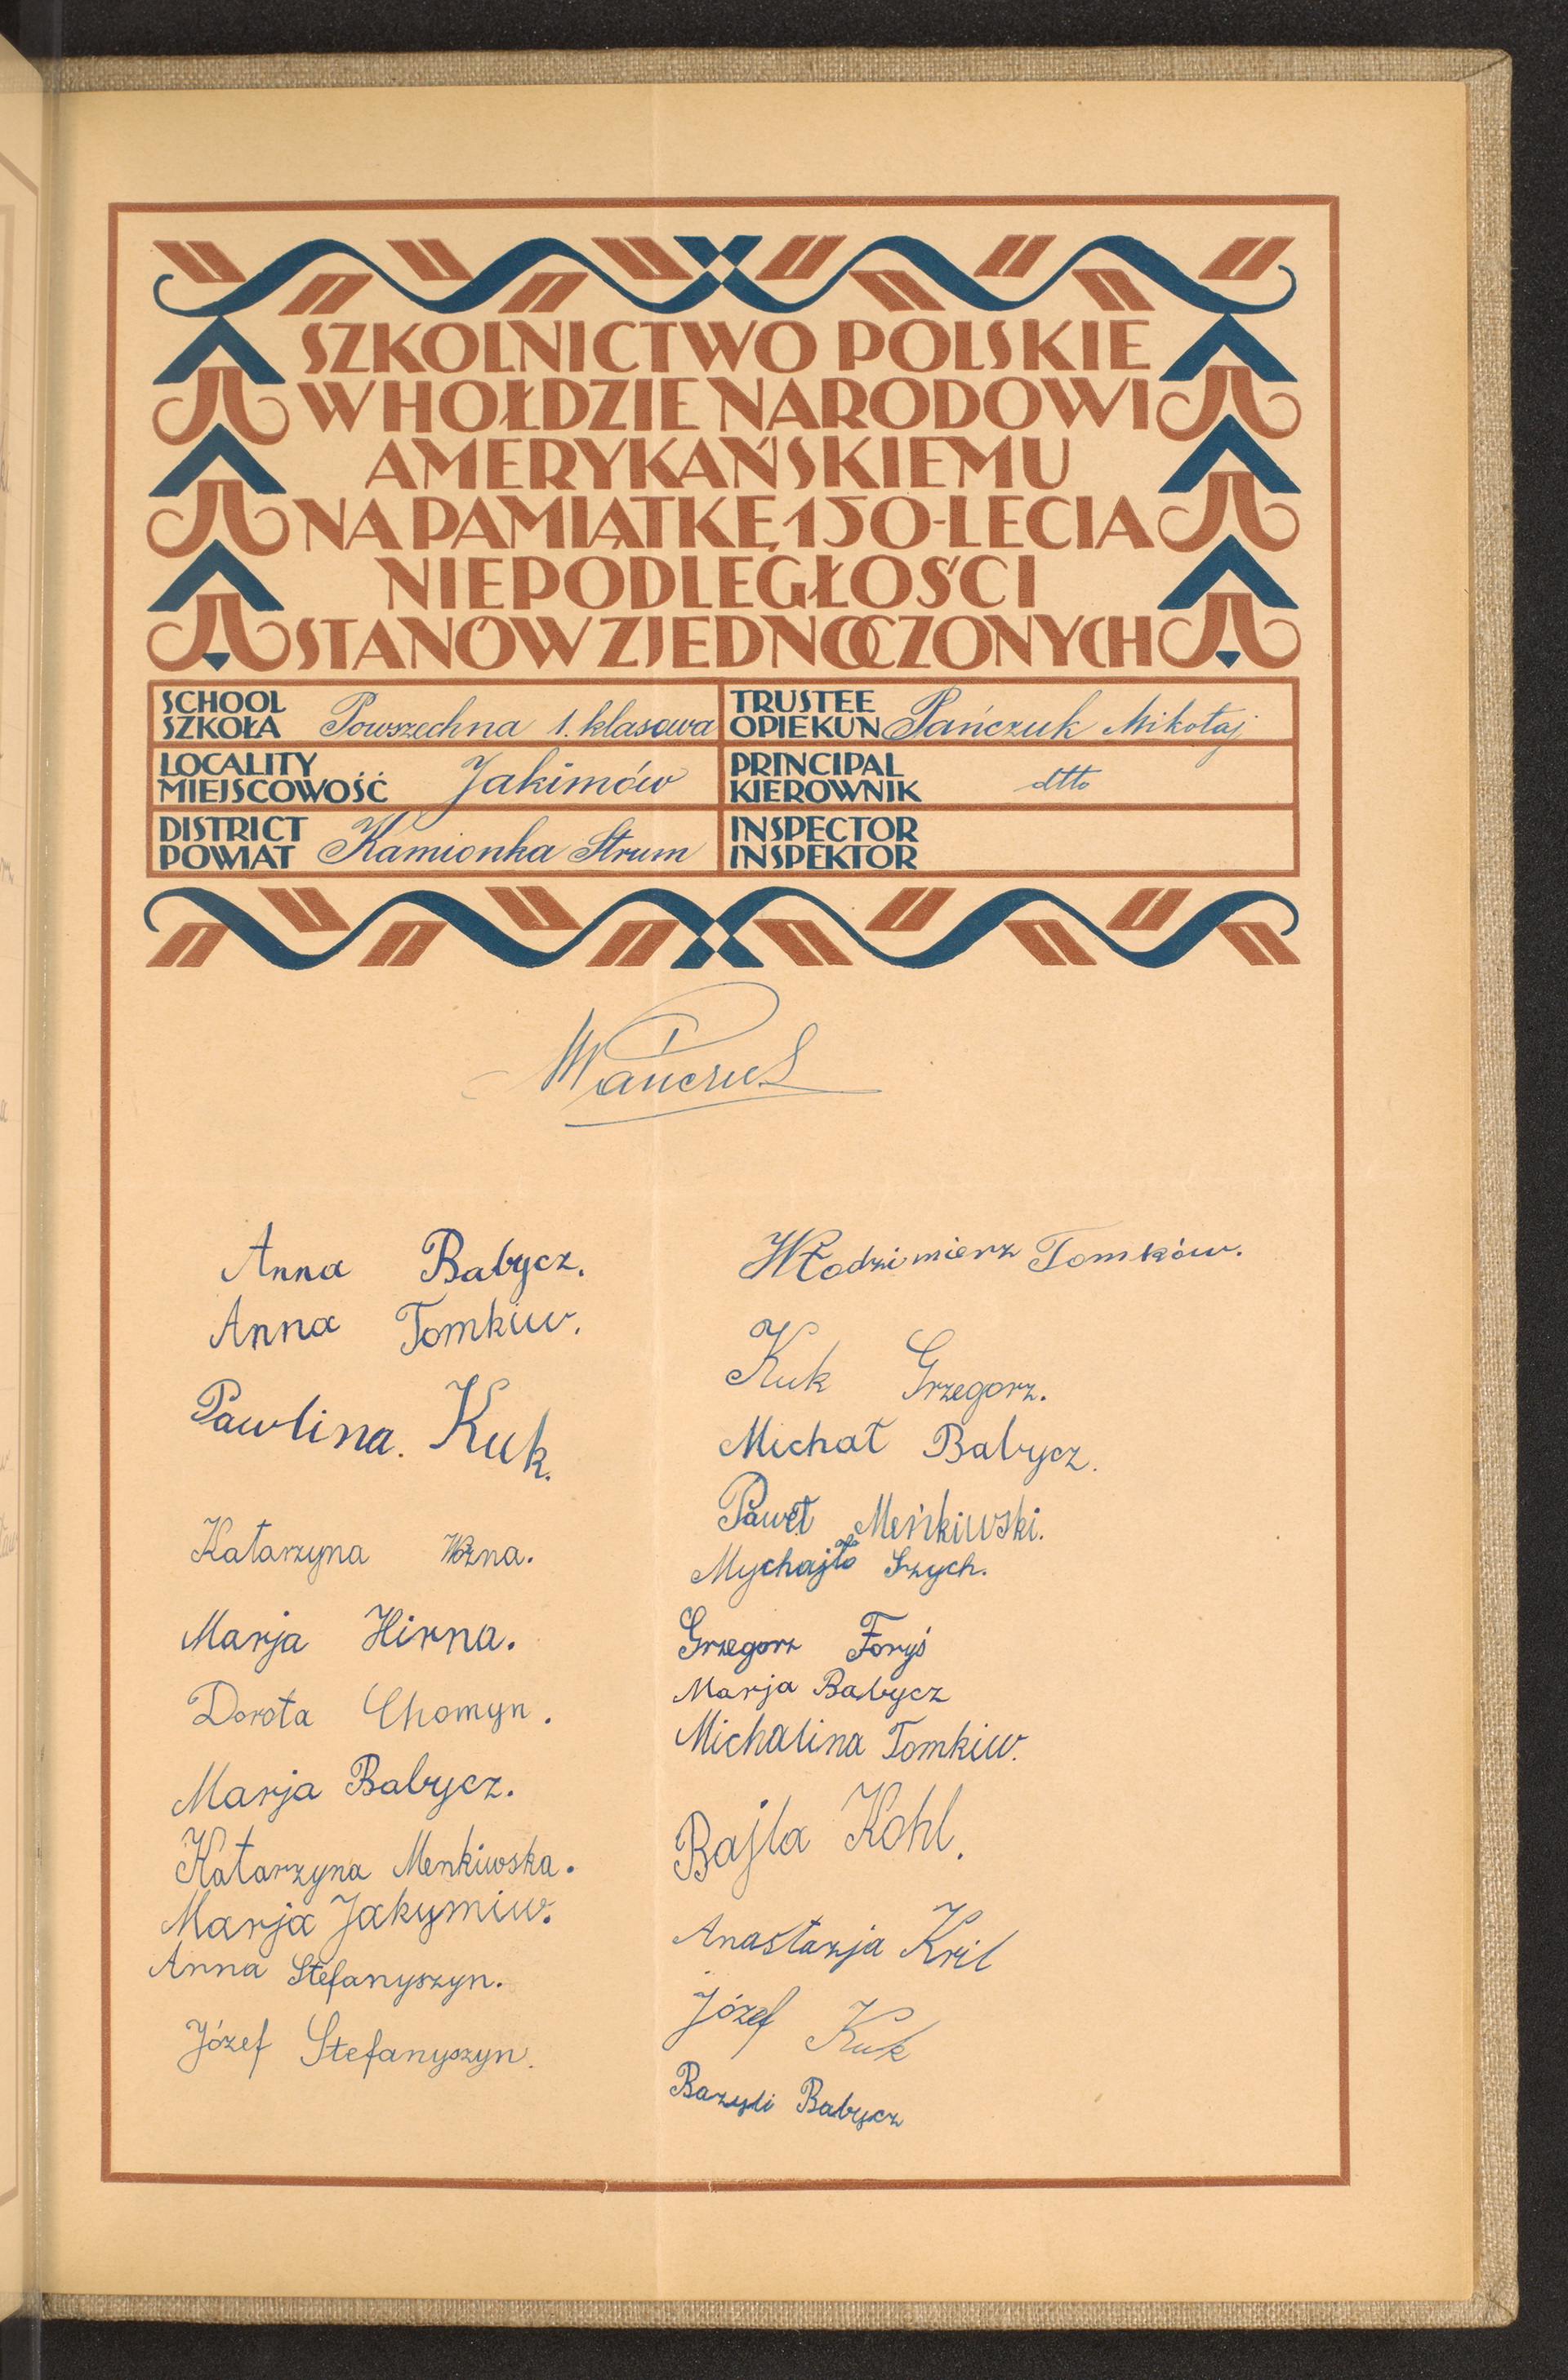 SZKOLNICTWO POLSKIE
W HOŁDZIE NARODOWI
AMERYKAŃSKIEMU
NA PAMIĄTKĘ 150-LECIA
NIEPODLEGŁOŚCI
STANÓW ZJEDNOCZONYCH
SCHOOL
SZKOŁA Powszechna 1. klasowa
TRUSTEE
OPIEKUN Pańczuk Mikołaj
LOCALITY
MIEJSCOWOŚĆ Jakimów
PRINCIPAL
KIEROWNIK dtto
DISTRICT
POWIAT Kamionka Strum
INSPECTOR
INSPEKTOR
MPańczuk
Anna Babycz.
Anna Tomkiw.
Pawlina. Kuk.
Katarzyna Wożna.
Marja Hirna.
Dorota Chomyn.
Marja Babycz.
Katarzyna Menkiwska.
Marja Jakymiw.
Anna Stefanyszyn.
Józef Stefanyszyn.
Włodzimierz Tomków.
Kuk Grzegorz.
Michał Babycz.
Paweł Meńkiwski.
Mychajło
Grzegorz Foryś
Marja Babycz
Michalina Tomkiw.
Bajla Kohl.
Anastazja Kril
Józef Kuk
Bazyli Babycz